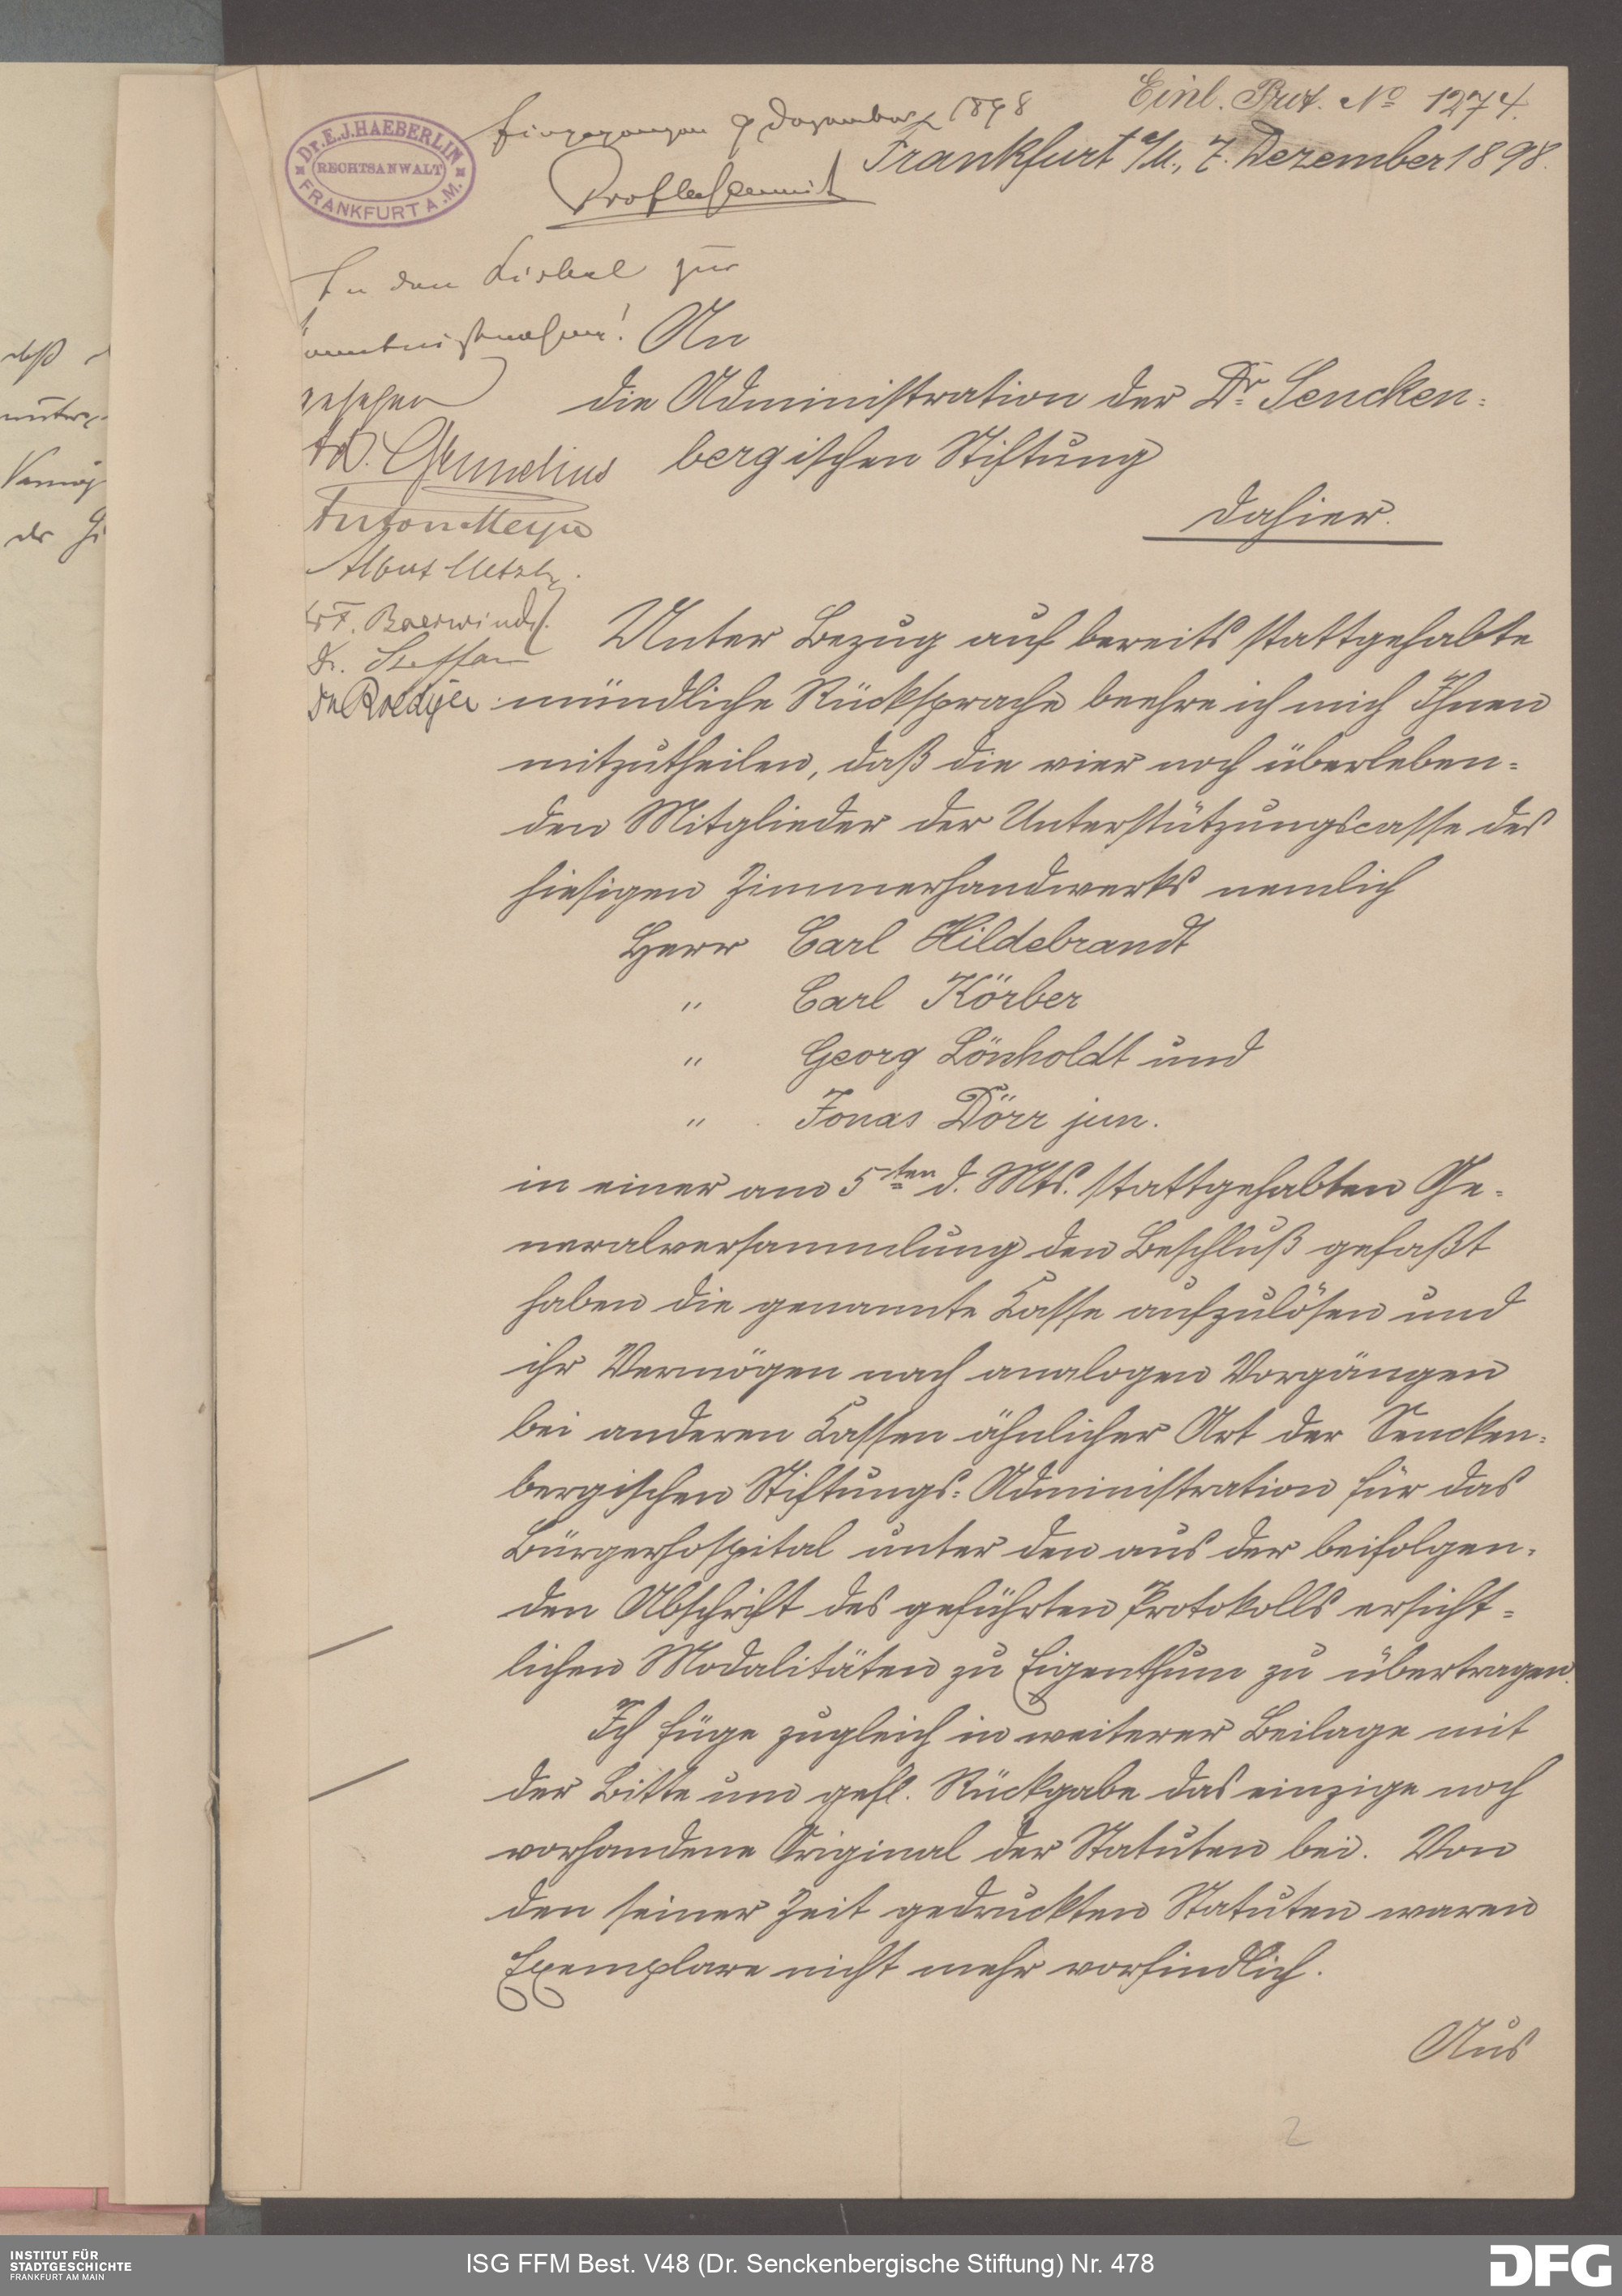 Einl. Prot. No 1274.
Eingegangen 9 Dezember 1898
Frankfurt a/M., 7. Dezember 1898.
Dr. E. J. HAEBERLIN
RECHTSANWALT
FRANKFURT A. M.
In den Zirkel zur
Kenntnisnahme!
gesehen
Anton Meyer
Albert Metzler
Dr. Roediger
An
die Administration der Dr. Sencken-
bergischen Stiftung
dahier.
Unter Bezug auf bereits stattgehabte
mündliche Rücksprache beehre ich mich Ihnen
mitzutheilen, daß die vier noch überleben-
den Mitglieder der Unterstützungscasse des
hiesigen Zimmerhandwerks nemlich
Herr Carl Hildebrandt
" Carl Körber
" Georg Lönholdt und
" Jonas Dörr jun.
in einer am 5ten d. Mts. stattgehabten Ge-
neralversammlung den Beschluß gefaßt
haben die genannte Casse aufzulösen und
ihr Vermögen nach analogen Vorgängen
bei anderen Cassen ähnlicher Art der Sencken-
bergischen Stiftungs-Administration für das
Bürgerhospital unter den aus der beifolgen-
den Abschrift des geführten Protokolls ersicht-
lichen Modalitäten zu Eigenthum zu übertragen.
Ich füge zugleich in weiterer Beilage mit
der Bitte um gefl. Rückgabe das einzige noch
vorhandene Original der Statuten bei. Von
den seiner Zeit gedruckten Statuten waren
Exemplare nicht mehr vorfindlich.
Aus
2
INSTITUT FÜR
STADTGESCHICHTE
FRANKFURT AM MAIN
ISG FFM Best. V48 (Dr. Senckenbergische Stiftung) Nr. 478
DFG